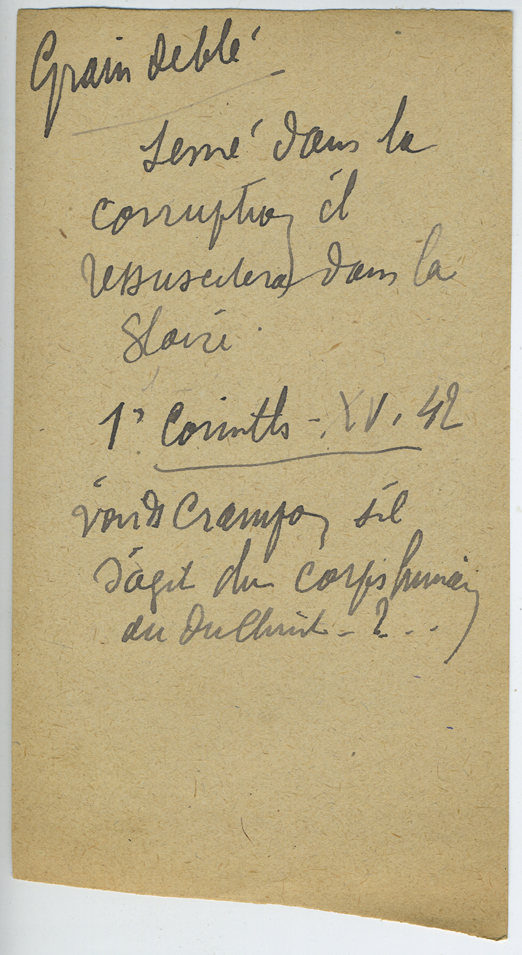 Grain de blé
Semé dans la
corruption il
ressuscitera dans la
Gloire.
1° Corinth - XV. 42
voir ds Crampon s'il
s'agit du corps humain
ou du Christ - ? ...